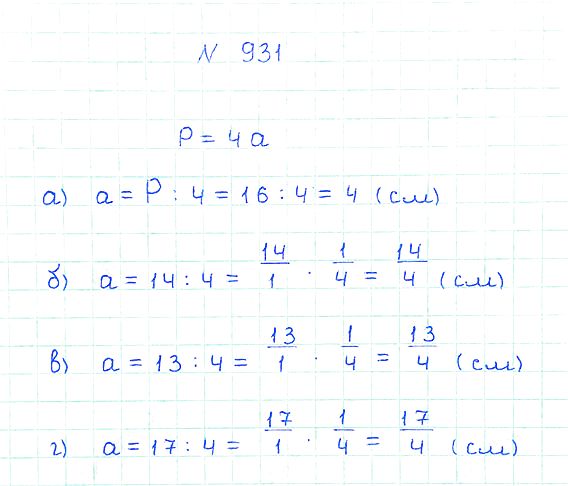 N 931
P = 4a
а) a = P : 4 = 16 : 4 = 4 (см)
б) a = 14 : 4 = 14/1 · 1/4 = 14/4 (см)
в) a = 13 : 4 = 13/1 · 1/4 = 13/4 (см)
г) a = 17 : 4 = 17/1 · 1/4 = 17/4 (см)